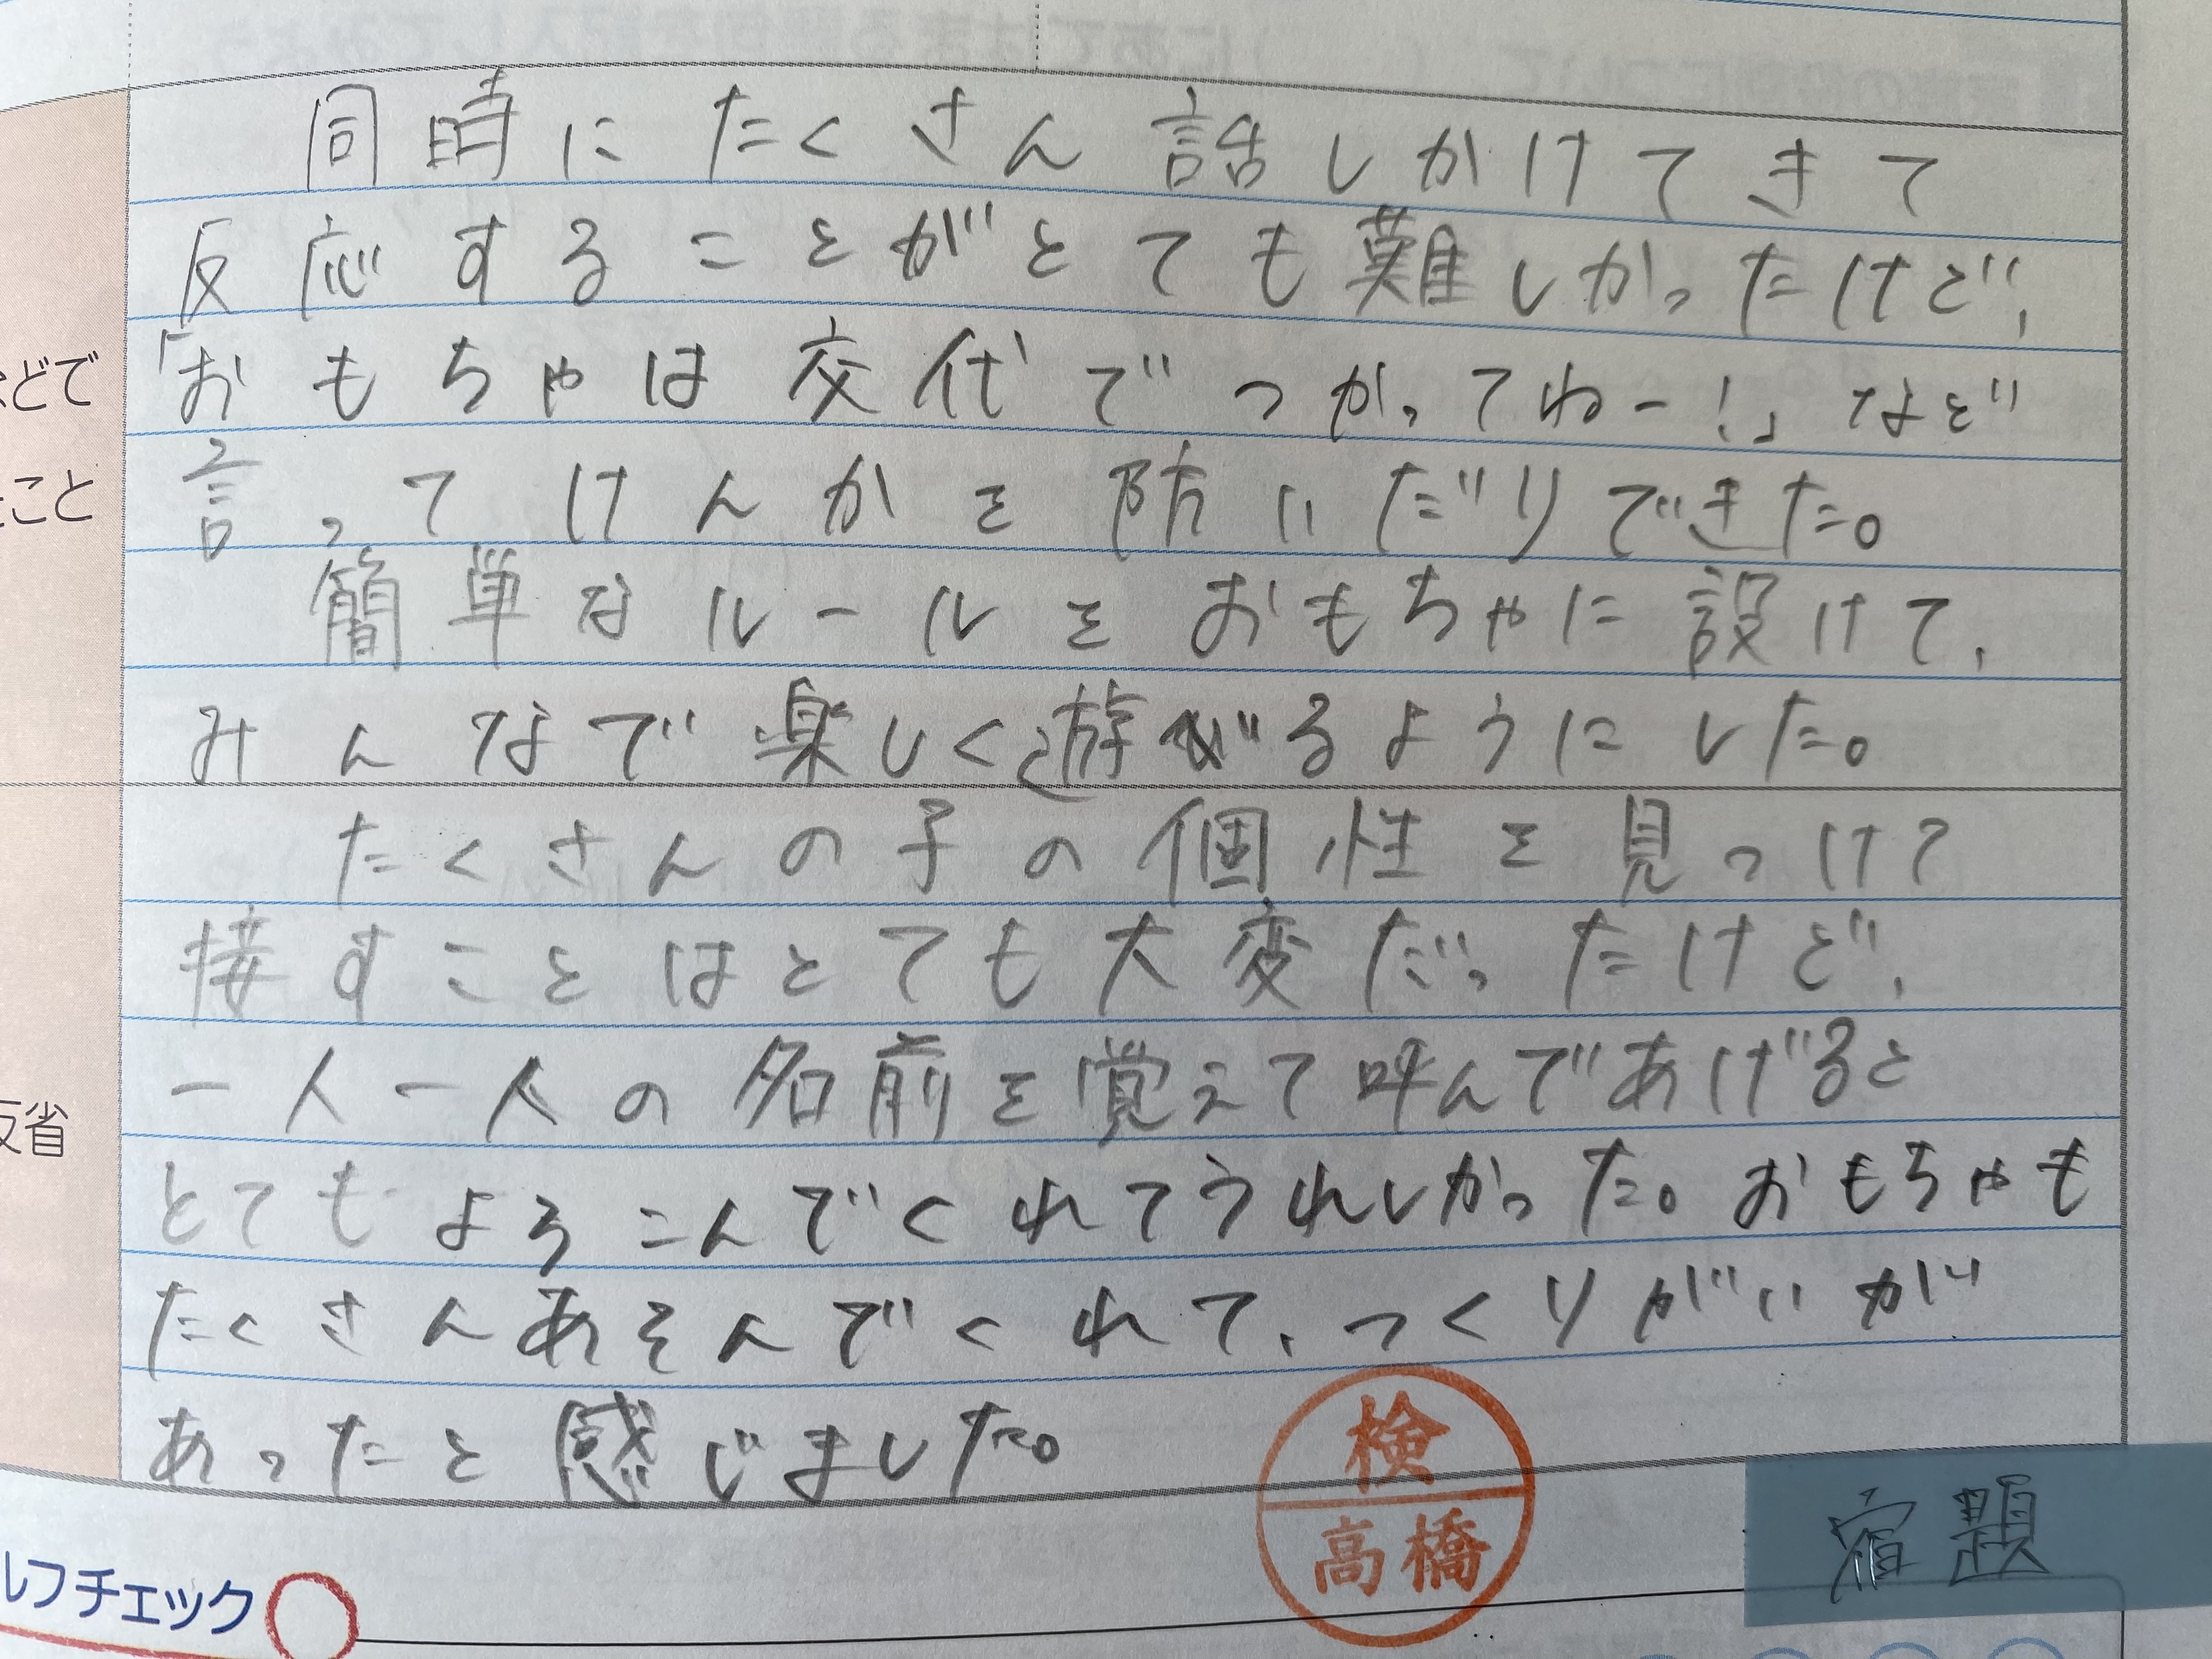 同時にたくさん話しかけてきて
反応することがとても難しかったけど、
「おもちゃは交代でつかってねー!」など
どで
言ってけんかを防いだりできた。
こと
簡単なルールをおもちゃに設けて、
みんなで楽しく遊がるようにした。
たくさんの子の個性を見つけて
接すことはとても大変だったけど、
一人一人の名前を覚えて呼んであげると
反省
とてもよろこんでくれてうれしかった。おもちゃも
たくさんあそんでくれて、つくりがいが
あったと感じました。
検
高橋
宿題
ルフチェック